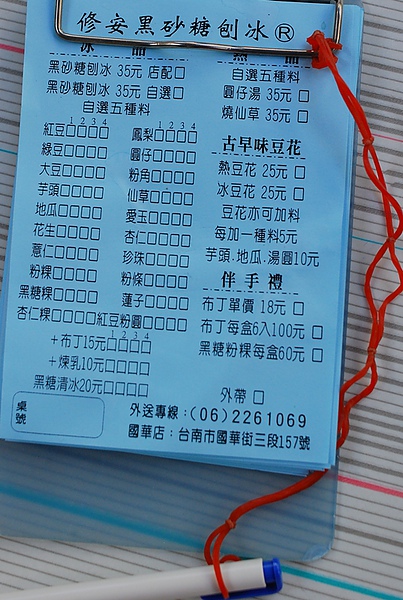 修安黑砂糖刨冰®
冰 品
黑砂糖刨冰 35元 店配□
黑砂糖刨冰 35元 自選□
自選五種料
1 2 3 4
紅豆□□□□
綠豆□□□□
大豆□□□□
芋頭□□□□
地瓜□□□□
花生□□□□
薏仁□□□□
粉粿□□□□
黑糖粿□□□□
杏仁粿□□□□
1 2 3 4
鳳梨□□□□
圓仔□□□□
粉角□□□□
仙草□□□□
愛玉□□□□
杏仁□□□□
珍珠□□□□
粉條□□□□
蓮子□□□□
紅豆粉圓□□□□
1 2 3 4
+布丁15元□□□□
+煉乳10元□□□□
黑糖清冰20元□□□□
熱 品
自選五種料
圓仔湯 35元 □
燒仙草 35元 □
古早味豆花
熱豆花 25元 □
冰豆花 25元 □
豆花亦可加料
每加一種料5元
芋頭.地瓜.湯圓10元
伴手禮
布丁單價 18元 □
布丁每盒6入100元 □
黑糖粉粿每盒60元 □
外帶 □
桌號
外送專線:(06)2261069
國華店:台南市國華街三段157號